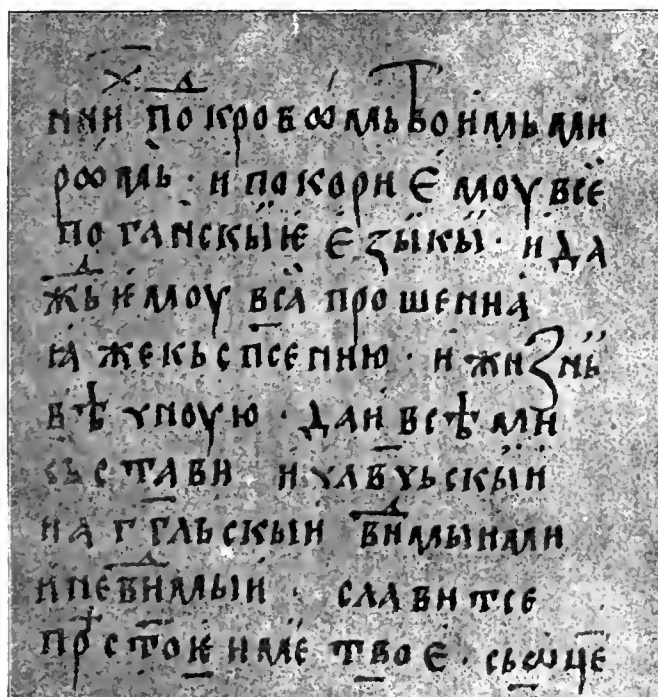 нни покровомь твоимь ми
ромь · и покори ѥмоу все
поганскыѥ єзыкы · и да
жь ѥмоу вса прошениꙗ
ꙗже кь спсению · и жизнь
вѣчноую · дан всѣми
сьстави и члвчьскыи
и аггльскыи виⷣмыими
и невиⷣмыи славитсе
прⷭѣстоѥ име твоѥ · сь ѡц҃е